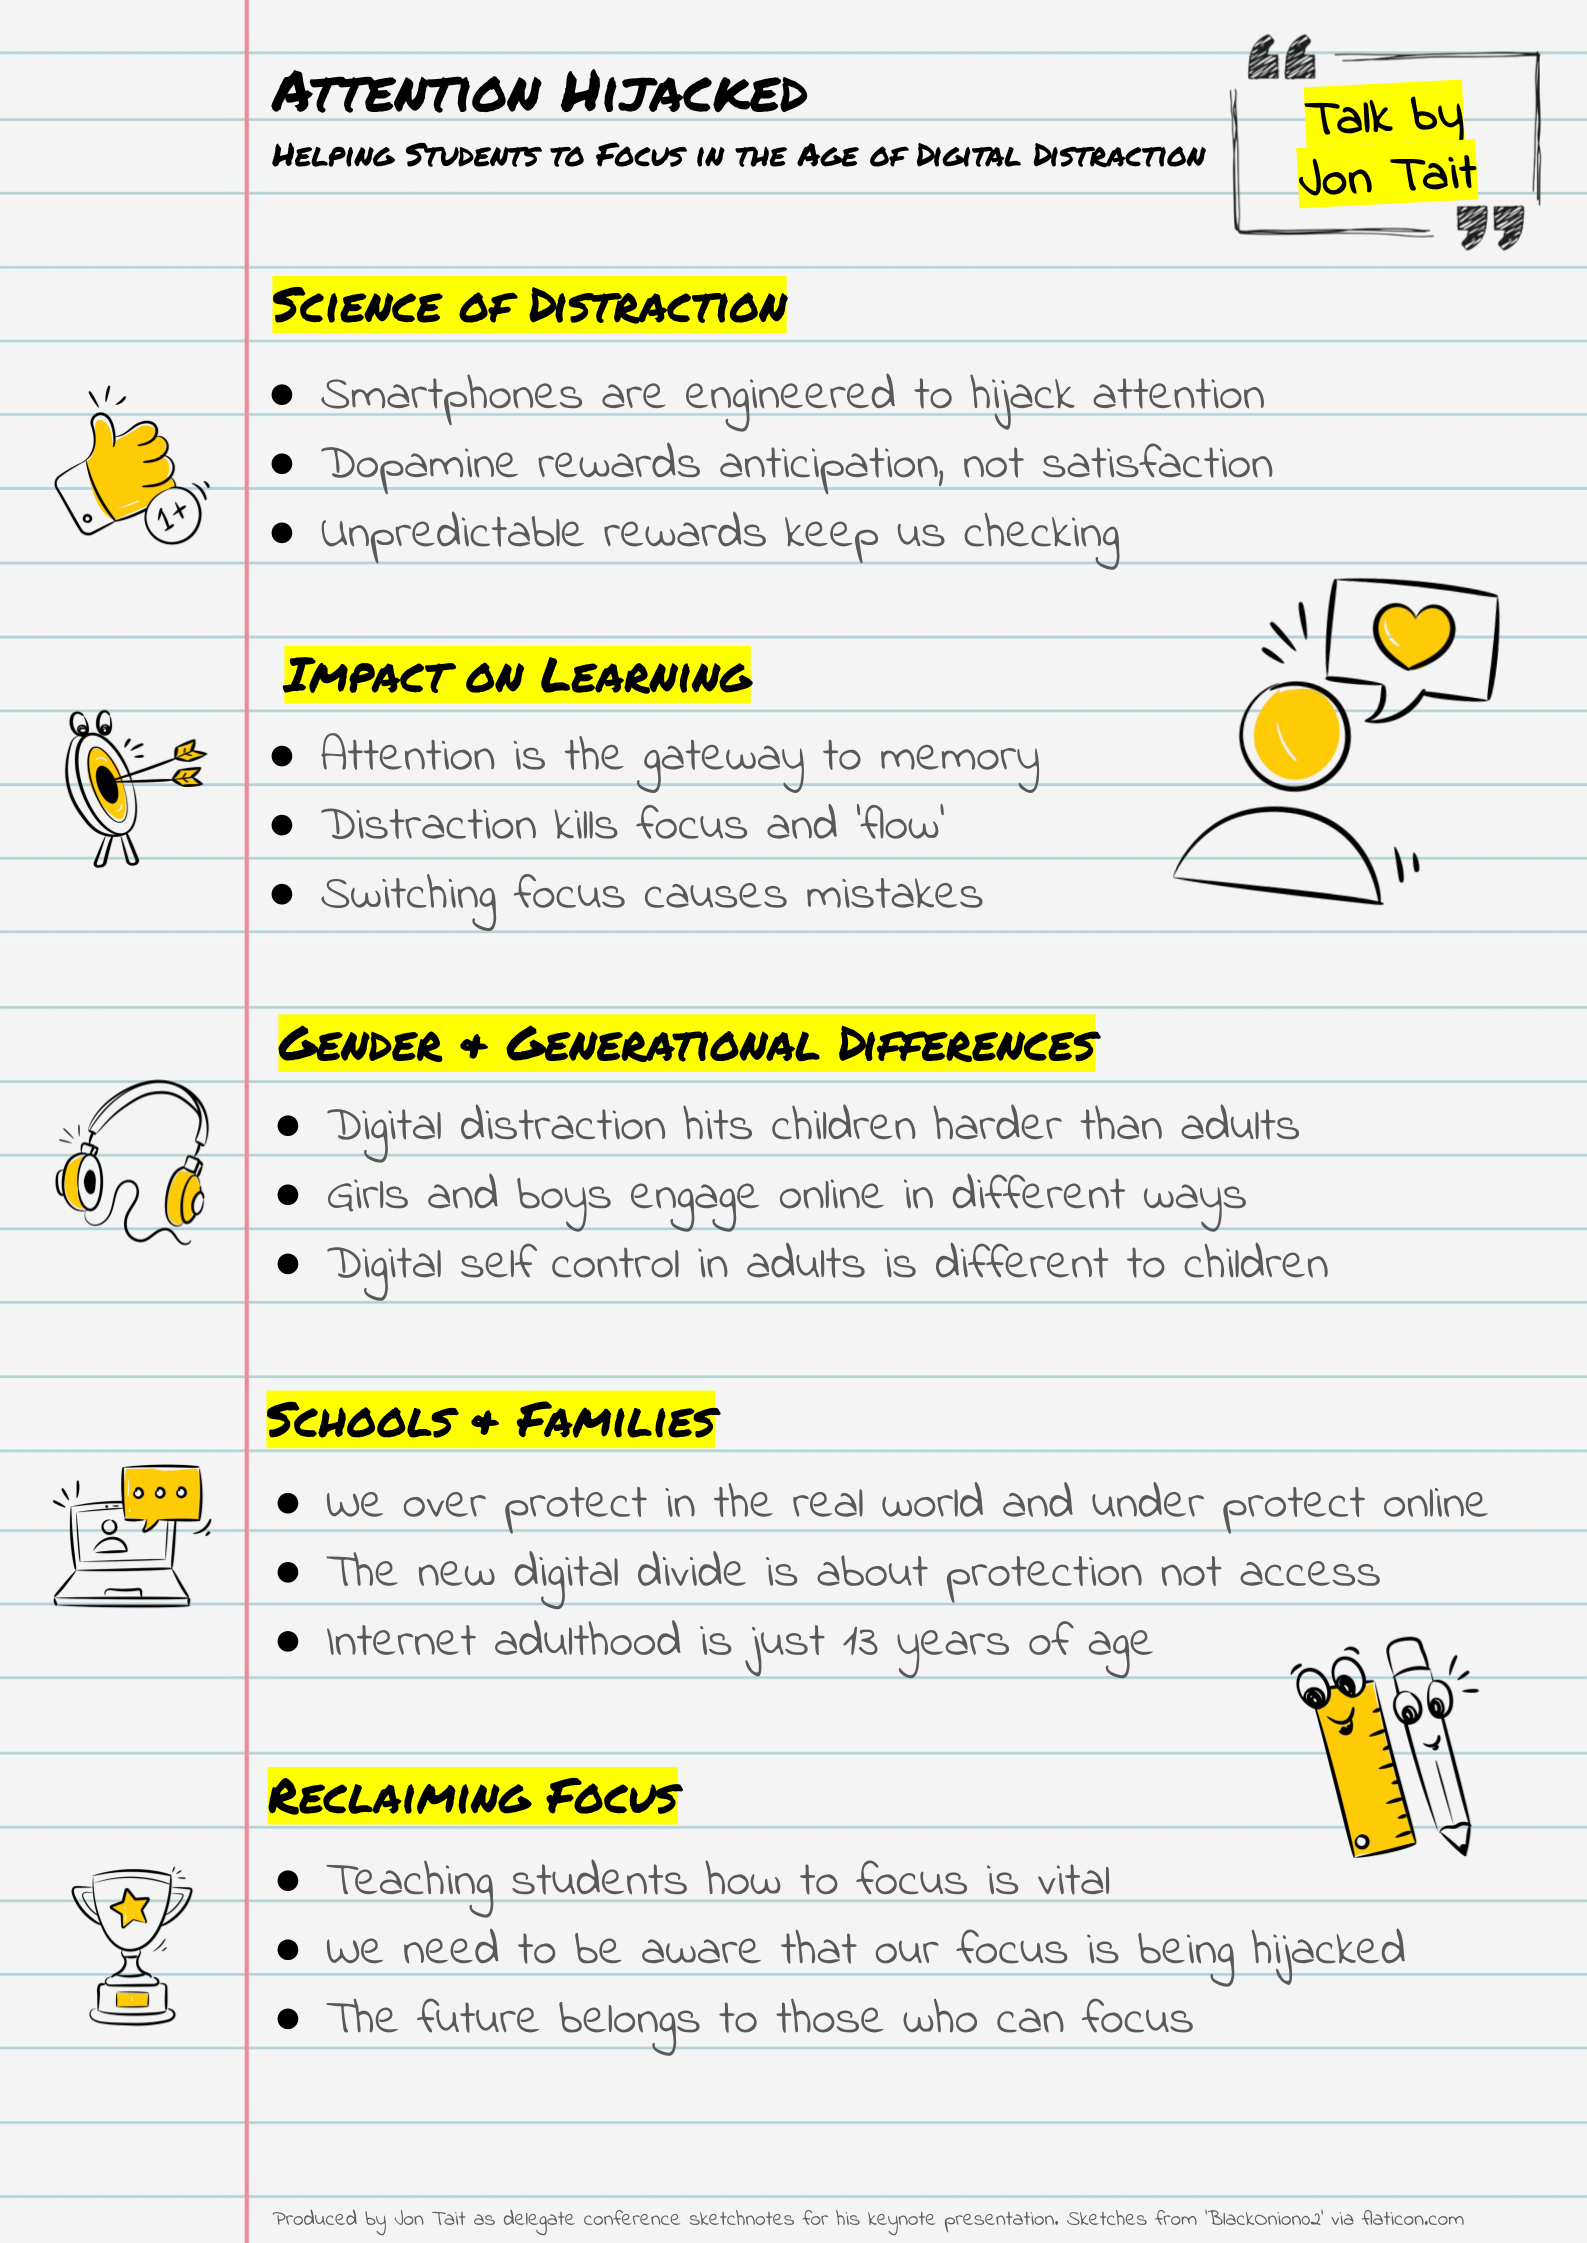 Attention Hijacked
Helping Students to Focus in the Age of Digital Distraction
Talk by
Jon Tait
Science of Distraction
● Smartphones are engineered to hijack attention
● Dopamine rewards anticipation, not satisfaction
● Unpredictable rewards keep us checking
1+
Impact on Learning
● Attention is the gateway to memory
● Distraction kills focus and 'flow'
● Switching focus causes mistakes
Gender & Generational Differences
● Digital distraction hits children harder than adults
● Girls and boys engage online in different ways
● Digital self control in adults is different to children
Schools & Families
● We over protect in the real world and under protect online
● The new digital divide is about protection not access
● Internet adulthood is just 13 years of age
Reclaiming Focus
● Teaching students how to focus is vital
● We need to be aware that our focus is being hijacked
● The future belongs to those who can focus
Produced by Jon Tait as delegate conference sketchnotes for his keynote presentation. Sketches from 'BlackOnion02' via flaticon.com